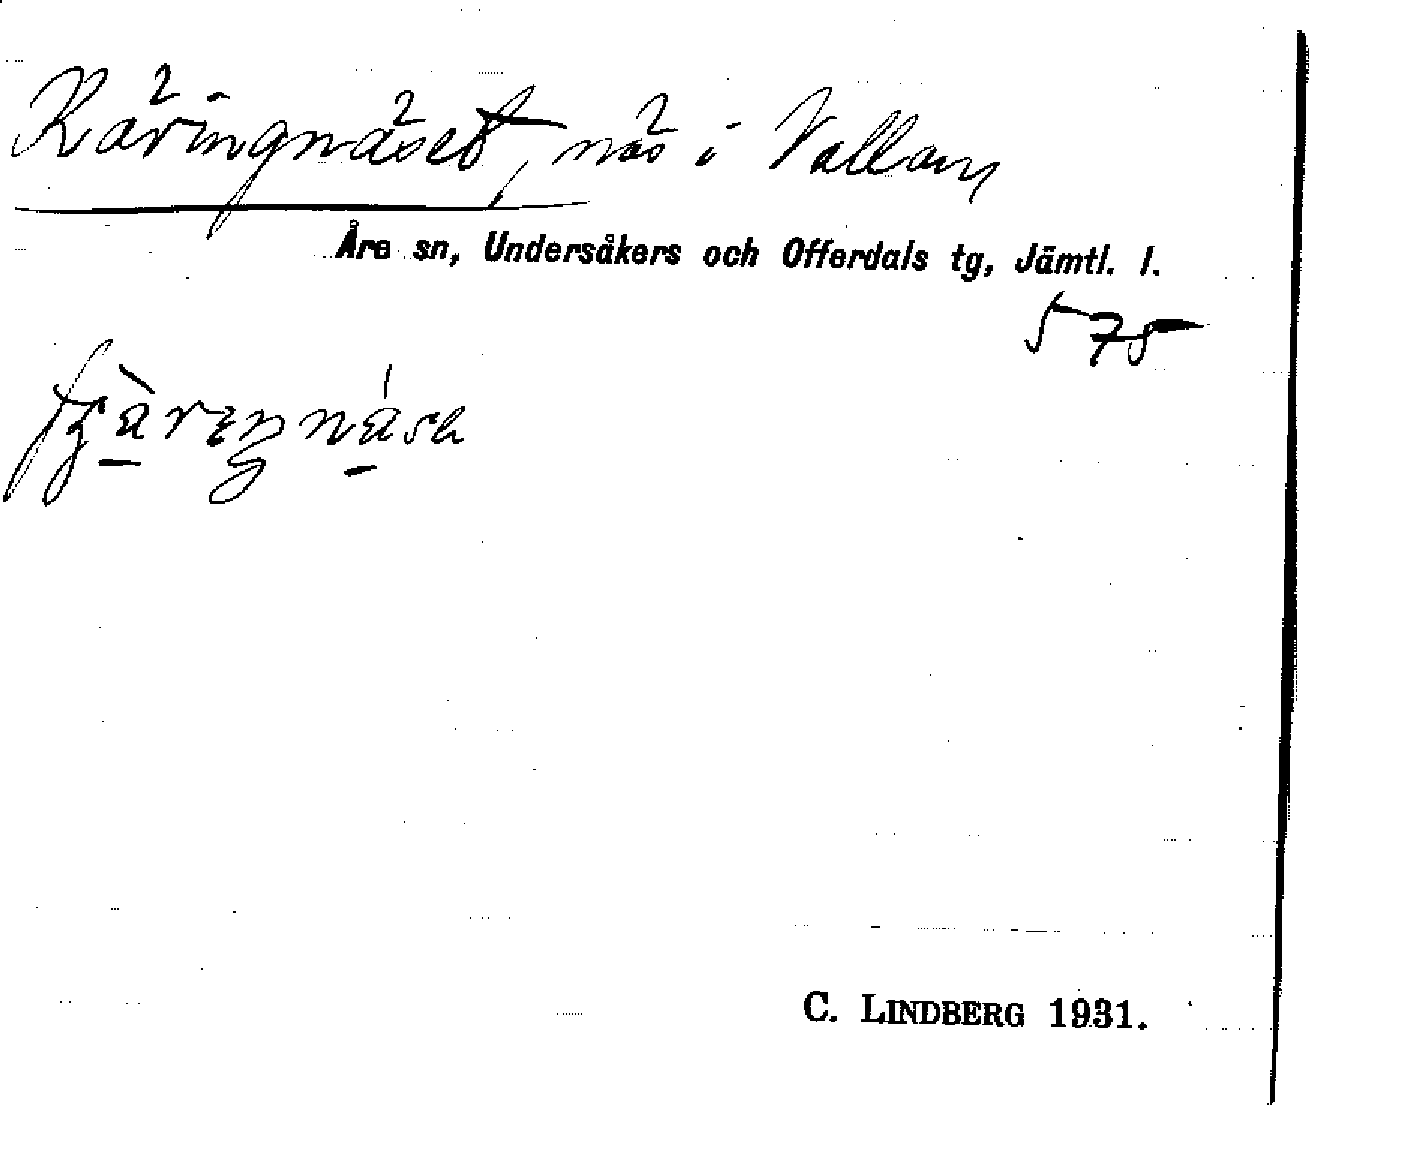 Käringnäset, näs i Vallarn
Åre sn, Undersåkers och Offerdals tg, Jämtl. l.
575
C. LINDBERG 1931.